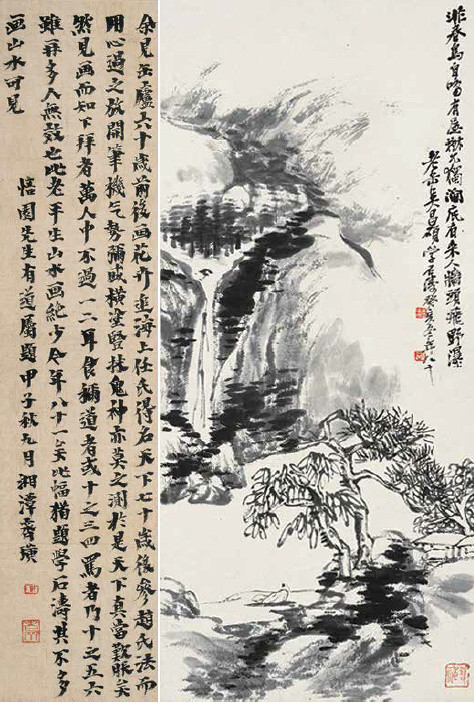 鳥自 有 不獨 澗底有 人 頭飛野瀑
老缶吳昌碩學石濤癸亥 年八十
余見缶廬六十歲前後画花卉追海上任氏得名天下七十歲後參趙氏法而
用心過之放開筆機氣勢彌盛橫塗豎抹鬼神亦莫之測於是天下真當歎服矣
然見画而知下拜者萬人中不過一二耳食稱道者或十之三四罵者乃十之五六
雖拜多人無效也此老平生山水画絕少今年八十一矣此幅猶題學石濤其不多
画山水可見
悟園先生有道屬題甲子秋九月湘潭齊璜